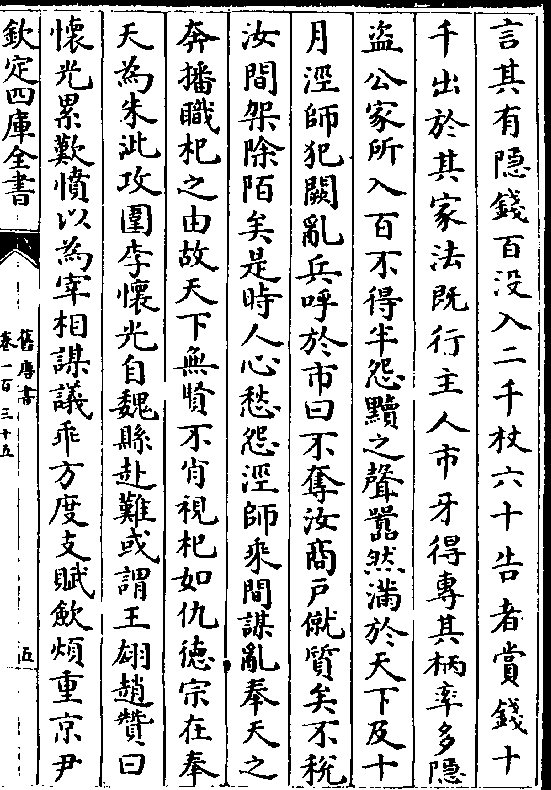 言其有隱錢百没入二千杖六十告者賞錢十
千出於其家法既行主人市牙得專其柄率多隱
盜公家所入百不得半怨黷之聲囂然滿於天下及十
月涇師犯闕亂兵呼於市曰不奪汝商戸僦質矣不稅
汝間架除陌矣是時人心愁怨涇師乘間謀亂奉天之
奔播職杞之由故天下無賢不肖視杞如仇德宗在奉
天為朱泚攻圍李懷光自魏縣赴難或謂王翃趙贊曰
懷光累歎憤以為宰相謀議乖方度支賦斂煩重京尹
欽定四庫全書
舊唐書
卷一百三十五
五